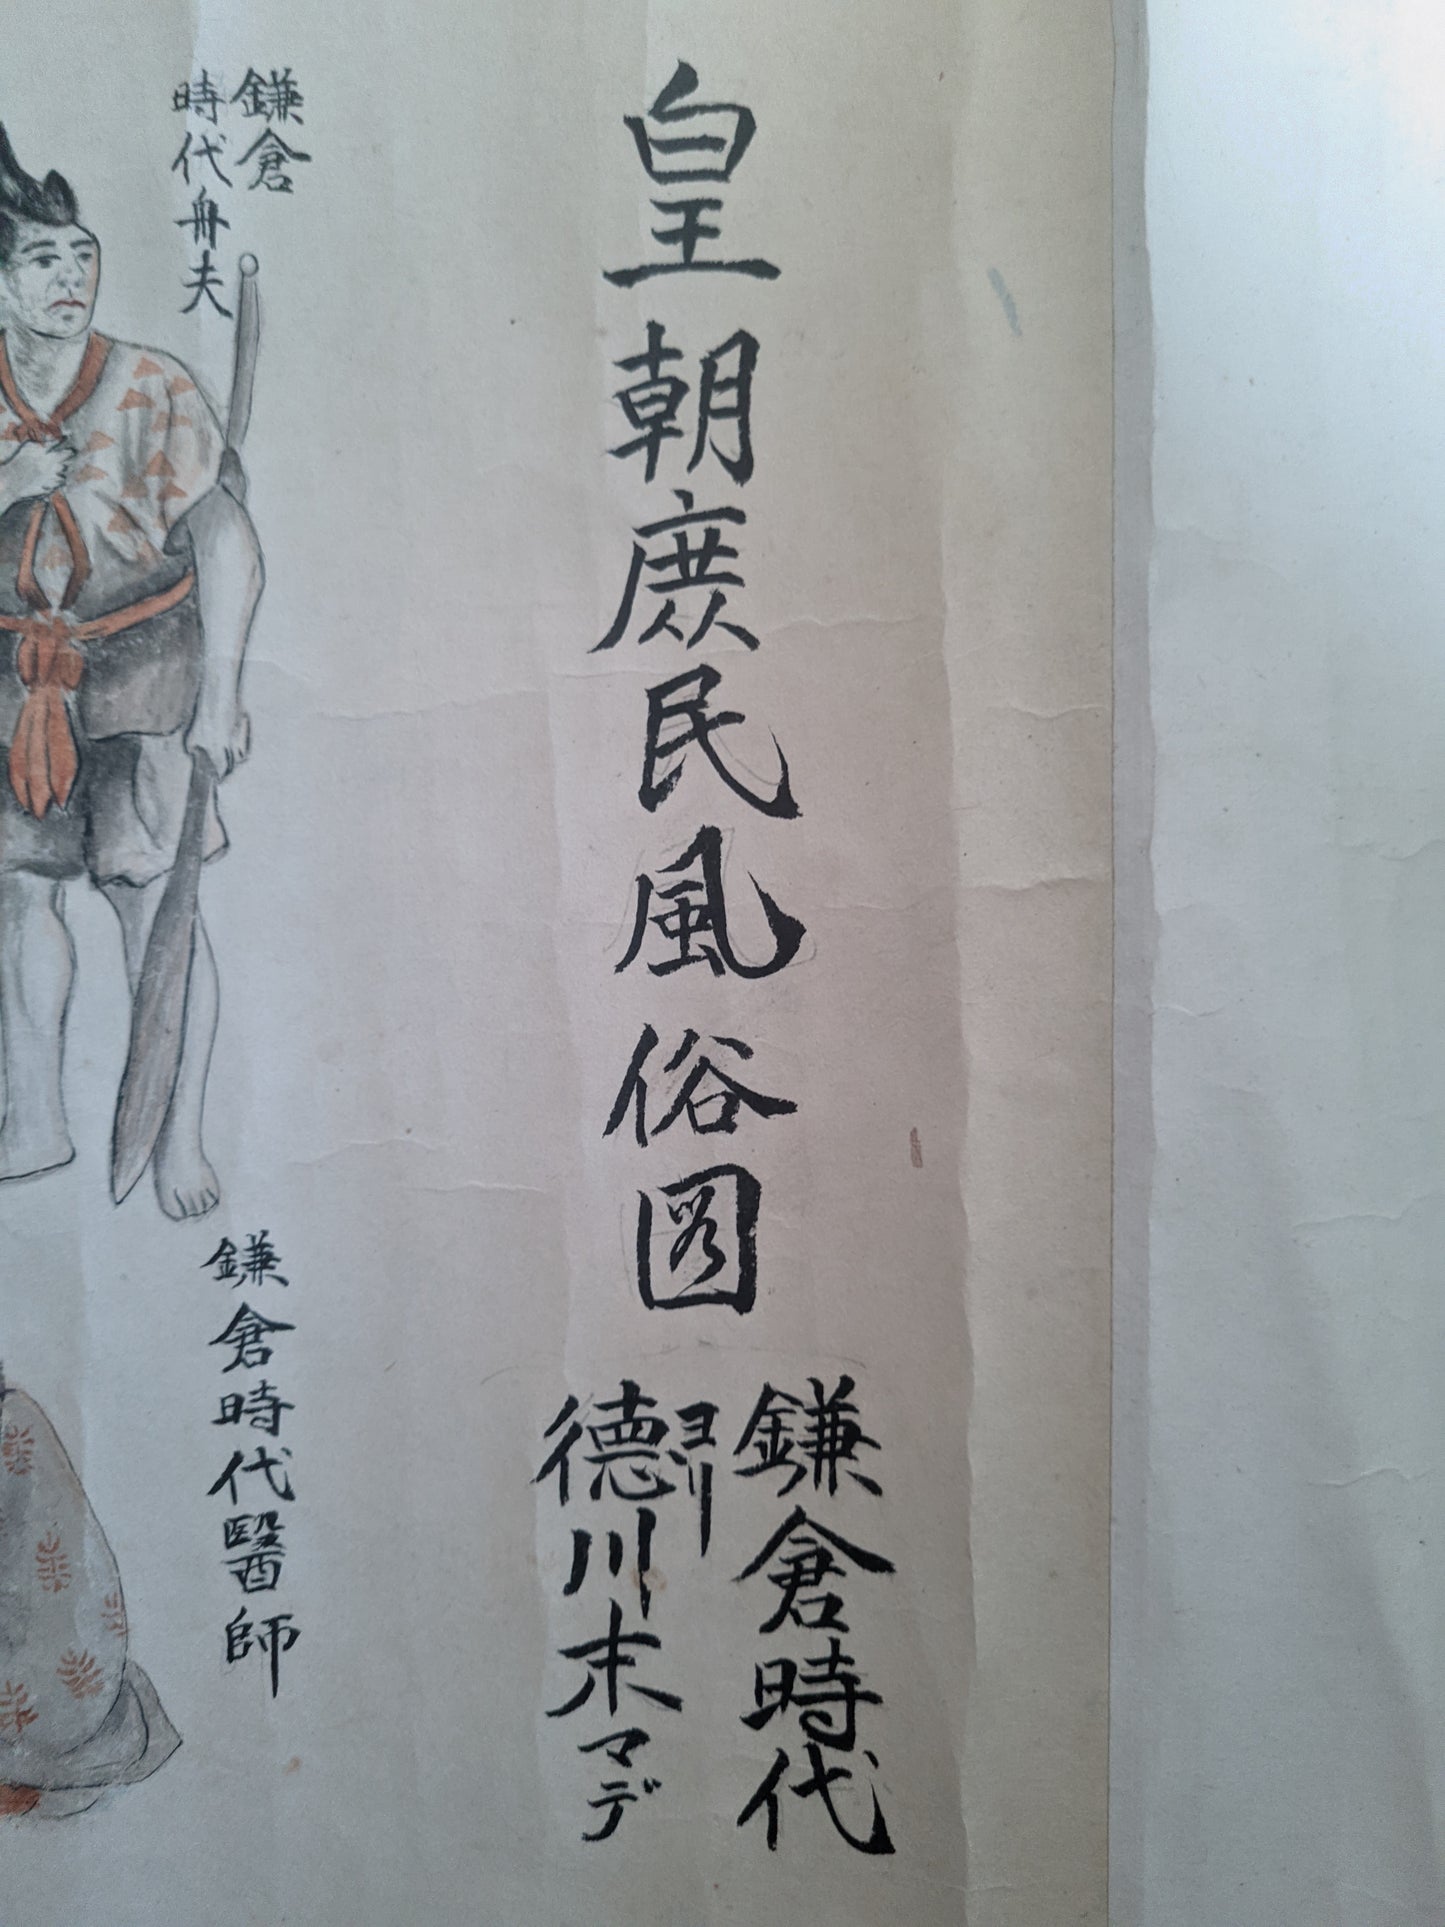 皇朝庶民風俗図
鎌倉時代
ヨリ
徳川末マデ
鎌倉
時代舟夫
鎌倉時代醫師